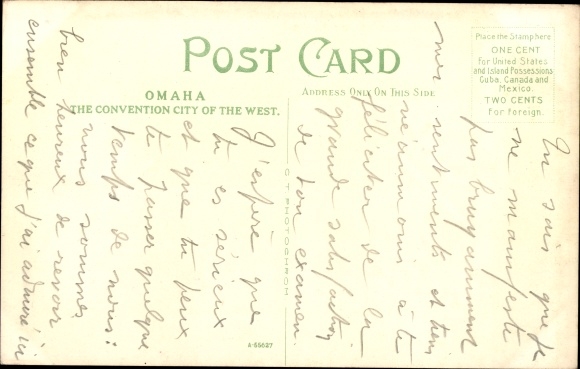 POST CARD
OMAHA
THE CONVENTION CITY OF THE WEST.
ADDRESS ONLY ON THIS SIDE
Place the Stamp here
ONE CENT
For United States
and Island Possessions
Cuba, Canada and
Mexico.
TWO CENTS
For Foreign.
C T PHOTOCHROM
A-55627
Tu sais que je
ne manifeste
pas bruyamment
mes sentiments et tiens
néanmoins à te
féliciter de la
grande satisfaction
de ton examen.
J'espère que
tu es sérieux
et que tu peux
te passer quelque
temps de nous:
nous sommes
bien heureux de revoir
ensemble ce que j'ai admiré ici